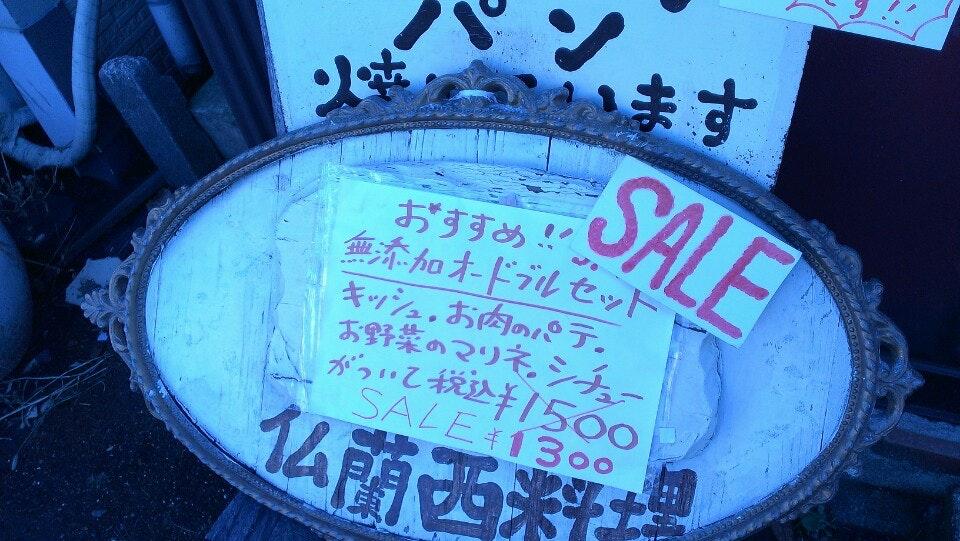 パン
焼いています
です!!
SALE
おすすめ!!
無添加オードブルセット
キッシュ。お肉のパテ。
お野菜のマリネ。シチュー
がついて税込¥1500
SALE ¥1300
仏蘭西料理